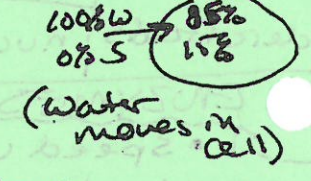 100% W → 85%
0% S 15%
(water
moves in
cell)